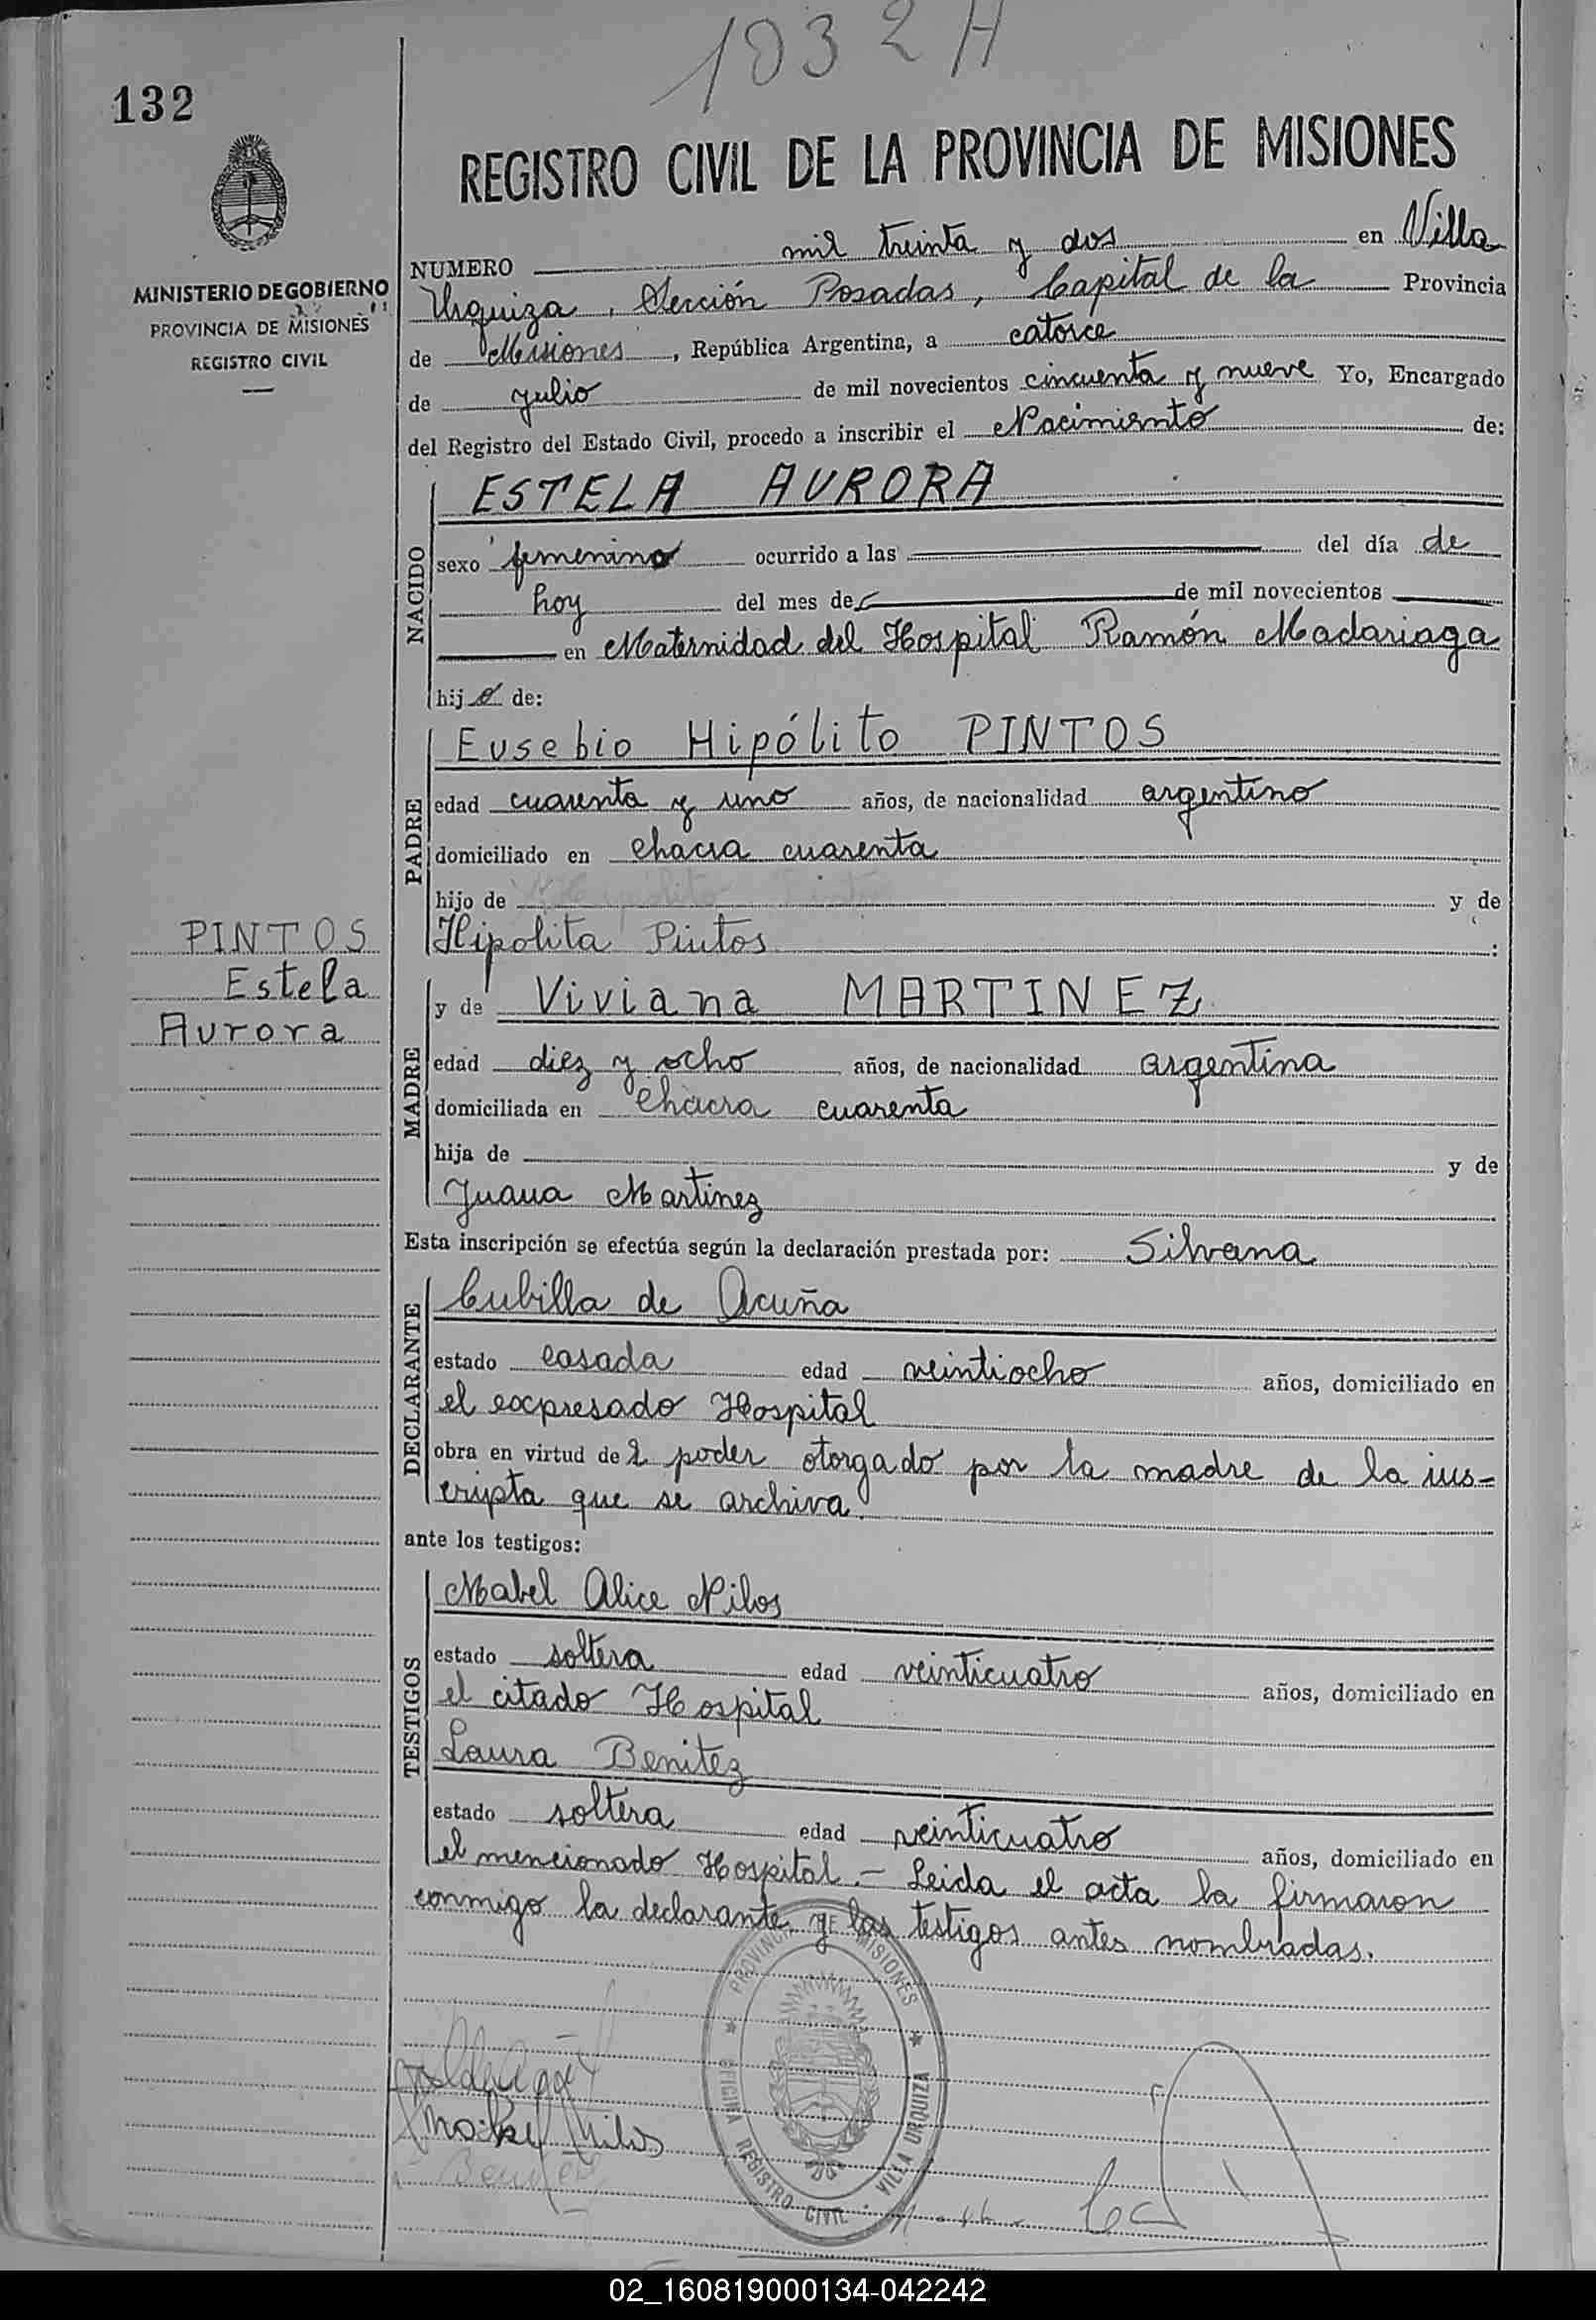 1032 A
132
REGISTRO CIVIL DE LA PROVINCIA DE MISIONES
MINISTERIO DE GOBIERNO
PROVINCIA DE MISIONES
REGISTRO CIVIL
NUMERO mil treinta y dos en Villa
Urquiza, Sección Posadas, Capital de la Provincia
de Misiones, República Argentina, a catorce
de julio de mil novecientos cincuenta y nueve Yo, Encargado
del Registro del Estado Civil, procedo a inscribir el Nacimiento de:
NACIDO
ESTELA AURORA
sexo femenino ocurrido a las del día de
hoy del mes de de mil novecientos
en Maternidad del Hospital Ramón Madariaga
hija de:
PADRE
Eusebio Hipólito PINTOS
edad cuarenta y uno años, de nacionalidad argentino
domiciliado en chacra cuarenta
hijo de y de
Hipolita Pintos
PINTOS
Estela
Aurora
MADRE
y de Viviana MARTINEZ
edad diez y ocho años, de nacionalidad argentina
domiciliada en Chacra cuarenta
hija de y de
Juana Martinez
Esta inscripción se efectúa según la declaración prestada por: Silvana
DECLARANTE
Cubilla de Acuña
estado casada edad veintiocho años, domiciliado en
el expresado Hospital
obra en virtud de poder otorgado por la madre de la ins-
cripta que se archiva.
ante los testigos:
TESTIGOS
Mabel Alice Nilos
estado soltera edad veinticuatro años, domiciliado en
el citado Hospital
Laura Benitez
estado soltera edad veinticuatro años, domiciliado en
el mencionado Hospital.- Leida el acta la firmaron
conmigo la declarante y las testigos antes nombradas.
PROVINCIA DE MISIONES
OFICINA REGISTRO CIVIL - VILLA URQUIZA
Mabel Nilos
02_160819000134-042242